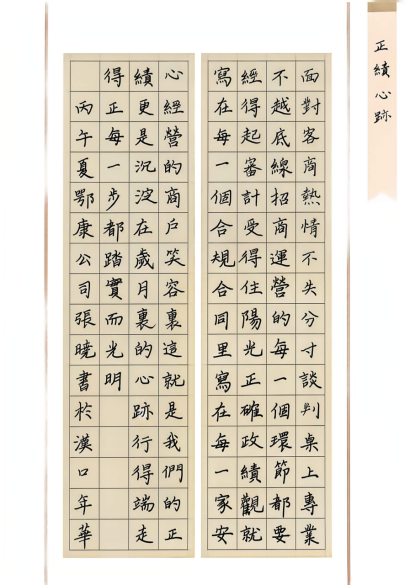 正績心跡
面對客商熱情不失分寸談判桌上專業
不越底線招商運營的每一個環節都要
經得起審計受得住陽光正確政績觀就
寫在每一個合規合同里寫在每一家安
心經營的商戶笑容裏這就是我們的正
績更是沉淀在歲月裏的心跡行得端走
得正每一步都踏實而光明
丙午夏鄂康公司張曉書於漢口年華